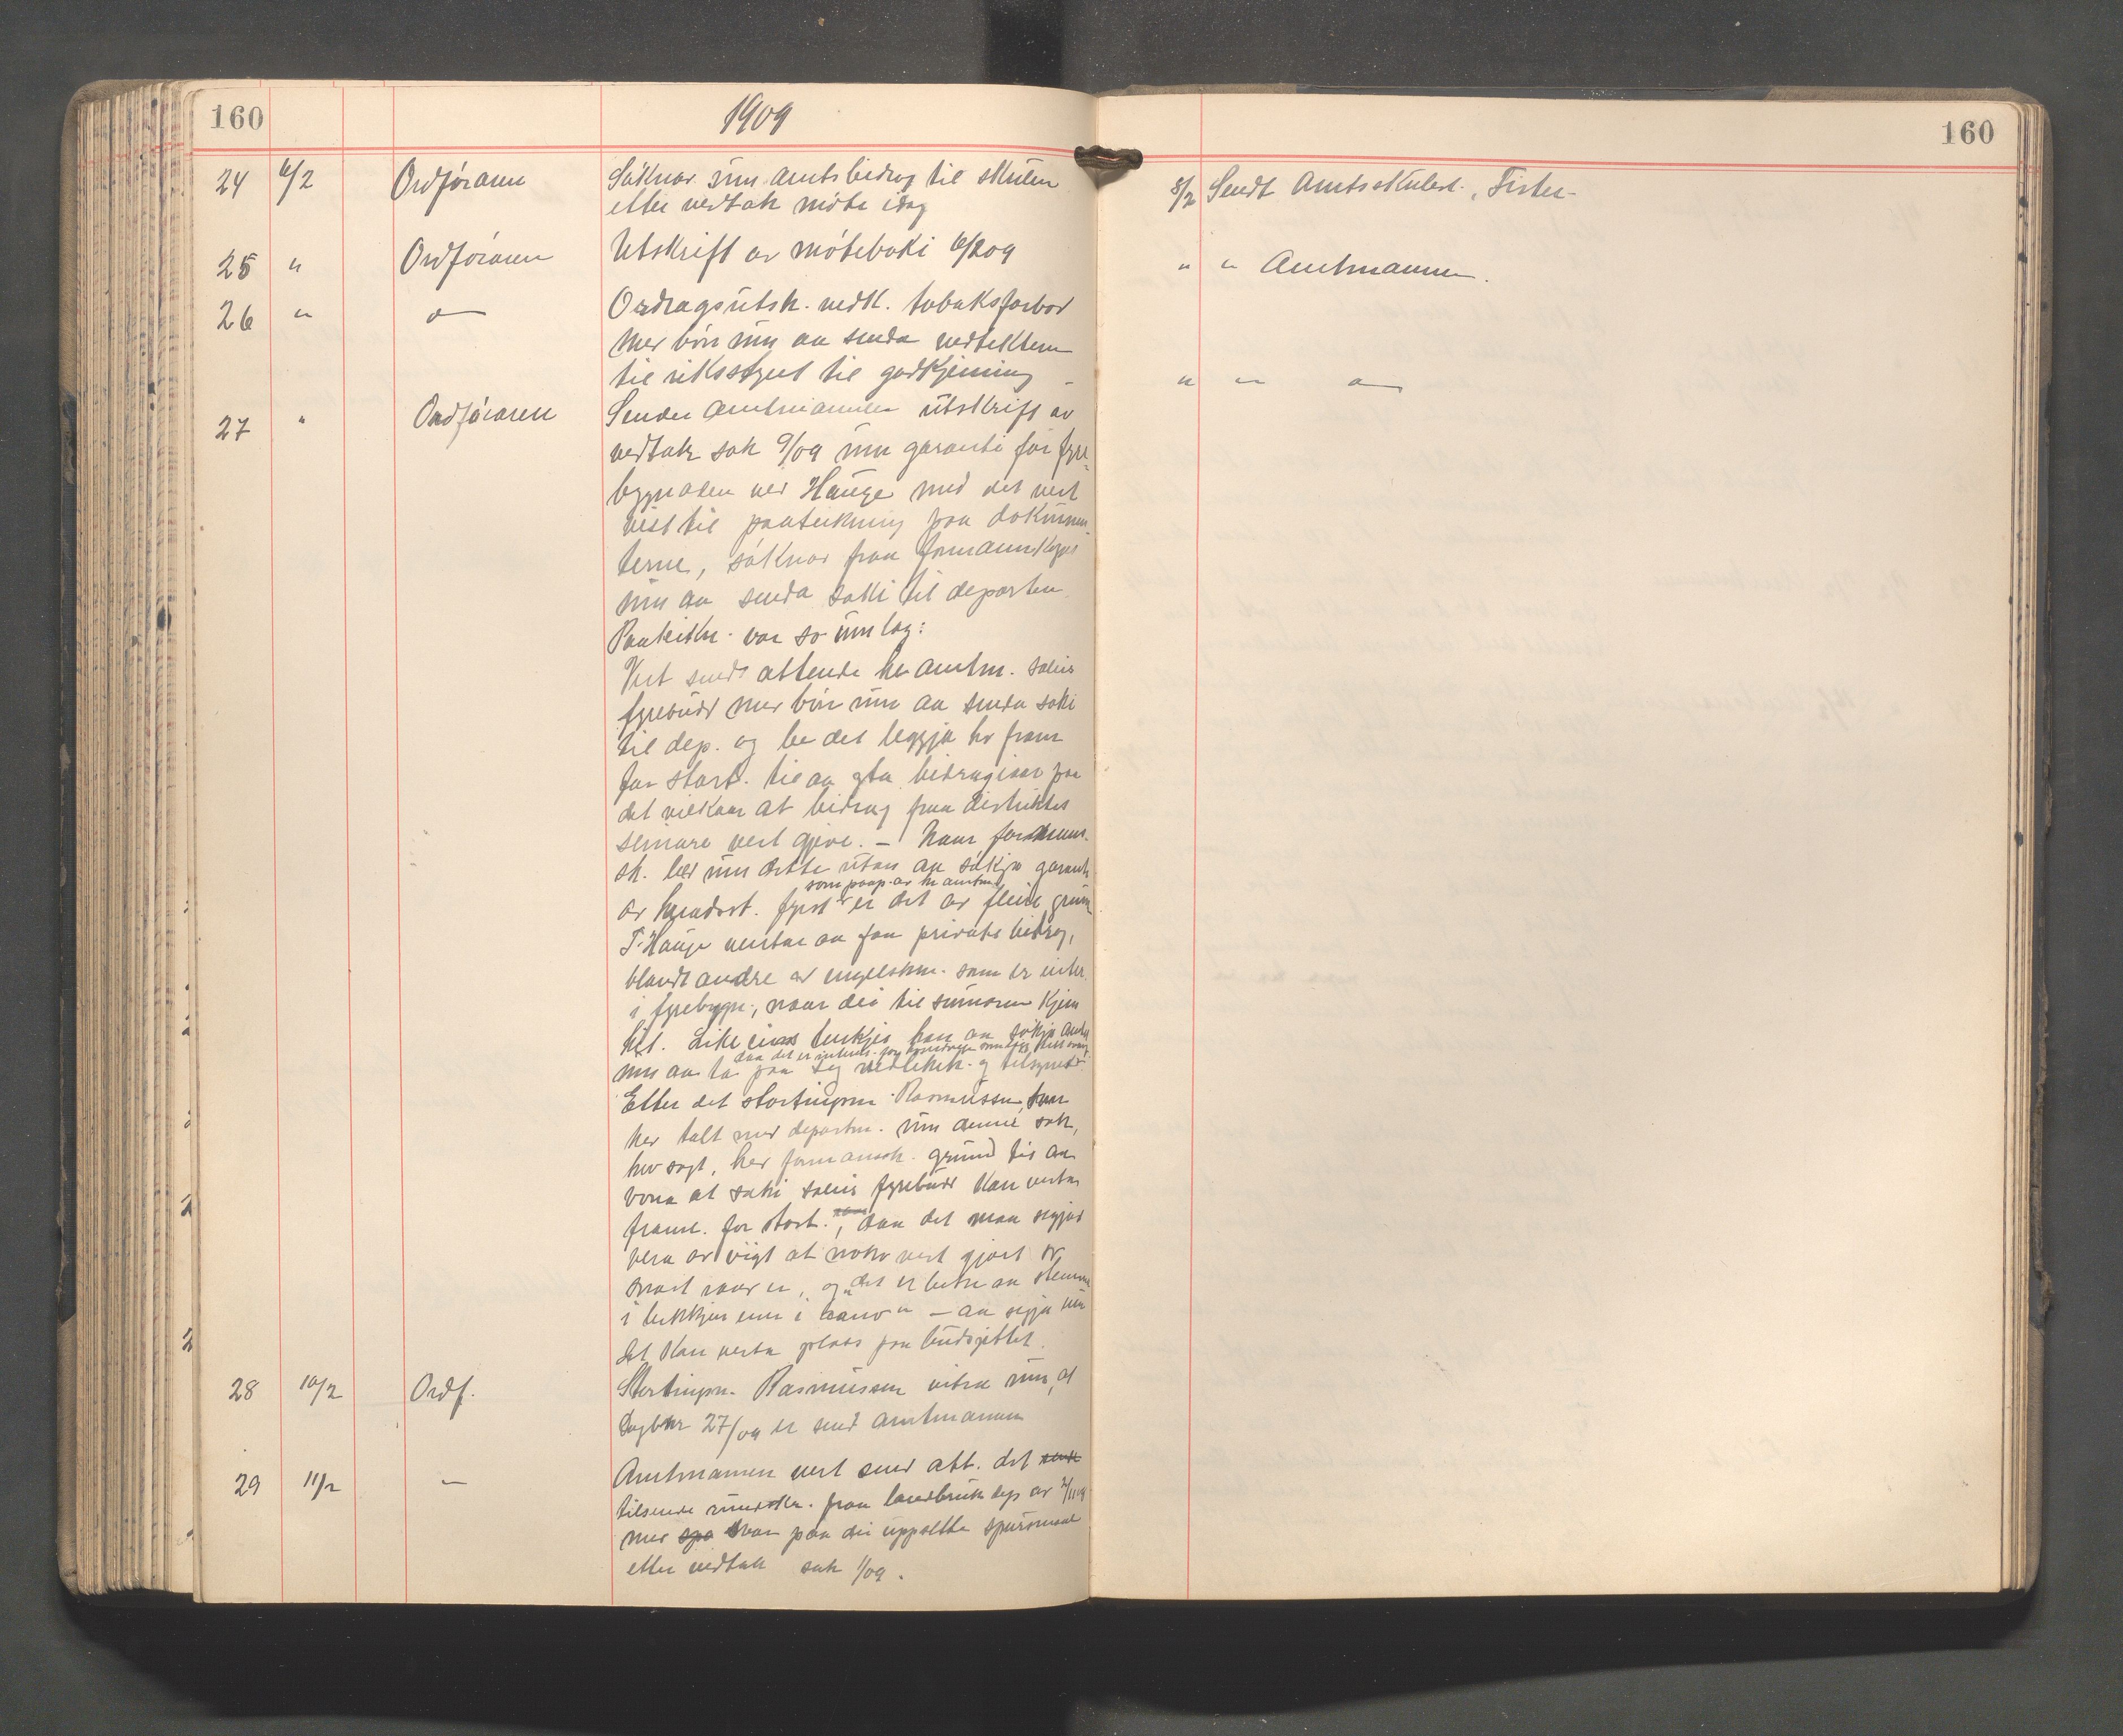 160
1909
24 6/2 Ordføraren Søknar um amtsbidrag til skulen
etter vedtak møte idag
25 " Ordføraren Utskrift av møteboki 6/2 09
26 " — Ordragsutsk. vedk. tobaksforbod
med bøn um aa senda vedtektern
til riksstyret til godkjenning
27 " Ordføraren Sender amtmannen utskrift av
vedtak sak 9/09 um garanti for fyre-
bygnaden ved Hauge med det vert
vist til paateikning paa dokumen
terne, søknar fraa formannskapet
um aa senda saki til departem.
Paateikn. var so umlag:
Vert sendt attende hr amtm. saleis
fyrebudt med bøn um aa senda saki
til dep. og be det leggja ho fram
for stort. til aa gta bidragiaar paa
det vilkaar at bidrag fraa distriktet
seinare vert gjeve. — Naar formann-
sk. ber um dette utan aa søkja garanti
som paap. av hr amtm.
av heradsst. fyrst er det av fleire grun
T. Hauge ventar aa faa private bidrag,
blandt andre av engelskm. som er inter.
i fyrebygn., naar dei til sumaren kjem
hit. Like eins tenkjer han aa søkja
um aa ta paa seg vedlikeh. og tilsynet
Etter det stortingsm. Rasmussen, som
hev talt med departm. um denne sak,
hev sagt, hev formannsk. grund til aa
vona at saki saleis fyrebudt kan verta
framl. for stort., daa det maa segjast
vera av vigt at noko vert gjort so
snart raad er, og "det er betre aa stemma
i bekkjen enn i aano" — aa segja um
det kan verta plass paa budsjettet.
28 10/2 Ordf. Stortingsm. Rasmussen vitra um, at
Dagb. nr 27/09 er send amtmannen
29 11/2 — Amtmannen vert send att. det
tilsende rundskr. fraa landbruksdep av
med svar paa dei uppsette spursmaal
etter vedtak sak 1/09.
160
8/2 Sendt Amtsskulest. Fister
" " Amtmannen.
" " —